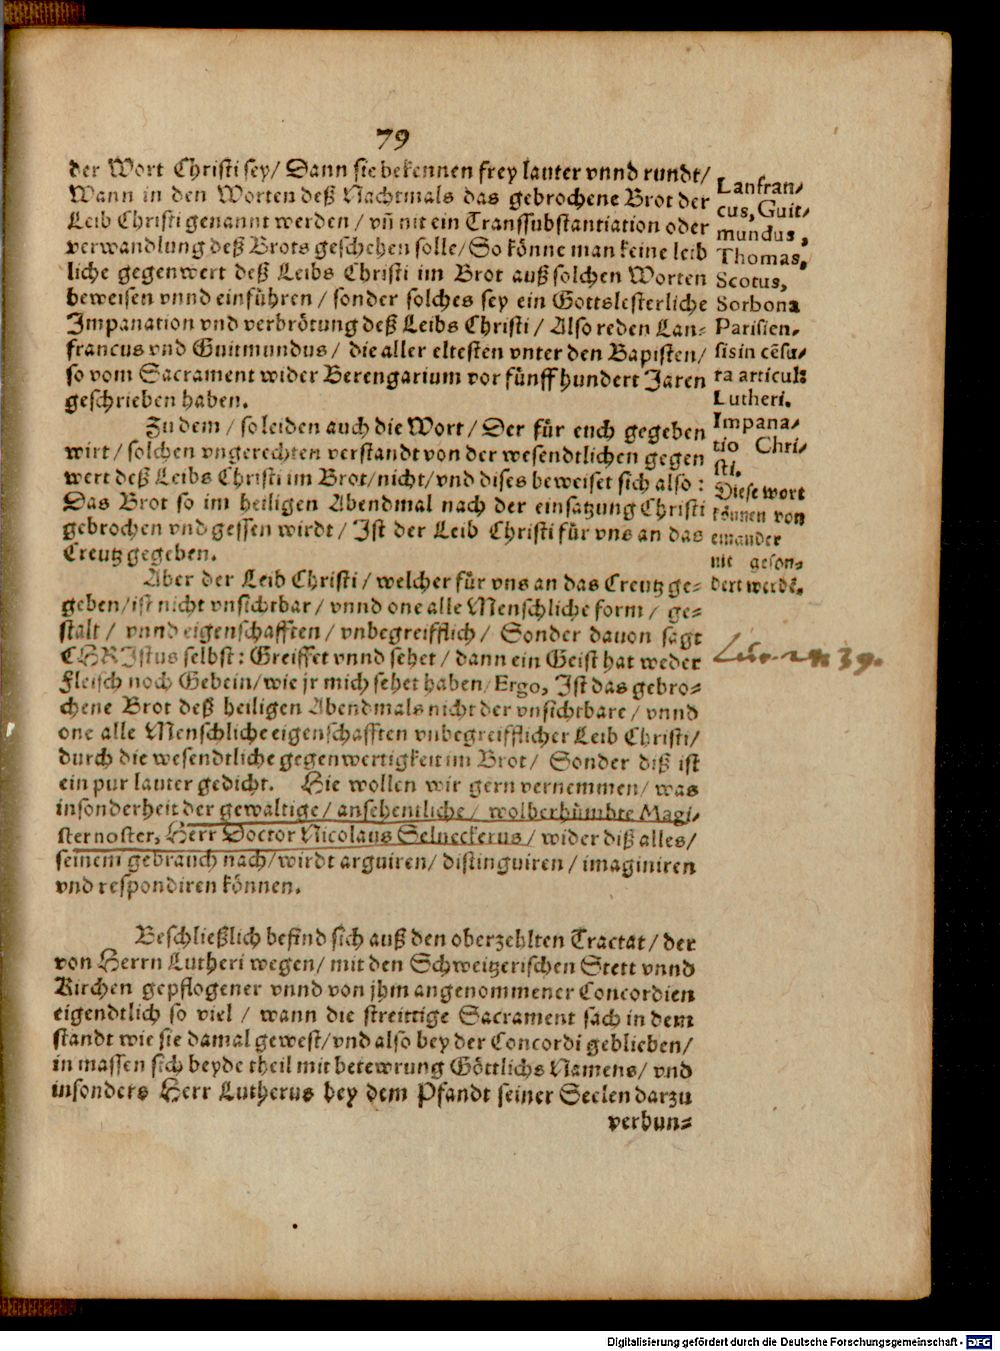 79
der Wort Christi sey/ Dann sie bekennen frey lauter vnnd rundt/
Wann in den Worten deß Nachtmals das gebrochene Brot der
Leib Christi genannt werden / vñ nit ein Transsubstantiation oder
verwandlung deß Brots geschehen solle/ So könne man keine leib
liche gegenwert deß Leibs Christi im Brot auß solchen Worten
beweisen vnnd einführen / sonder solches sey ein Gottslesterliche
Impanation vnd verbrötung deß Leibs Christi / Also reden Lan-
francus vnd Guitmundus / die aller eltesten vnter den Bapisten/
so vom Sacrament wider Berengarium vor fünff hundert Jaren
geschrieben haben.
Zu dem / so leiden auch die Wort / Der für euch gegeben
wirt / solchen vngerechten verstandt von der wesendtlichen gegen
wert deß Leibs Christi im Brot/nicht/vnd dises beweiset sich also :
Das Brot so im heiligen Abendmal nach der einsatzung Christi
gebrochen vnd gessen wirdt / Ist der Leib Christi für vns an das
Creutz gegeben.
Aber der Leib Christi / welcher für vns an das Creutz ge-
geben/ist nicht vnsichtbar / vnnd one alle Menschliche form / ge-
stalt / vnnd eigenschafften / vnbegreifflich / Sonder dauon sagt
CHRIstus selbst: Greiffet vnnd sehet / dann ein Geist hat weder
Fleisch noch Gebein/wie jr mich sehet haben/ Ergo, Ist das gebro-
chene Brot deß heiligen Abendmals nicht der vnsichtbare / vnnd
one alle Menschliche eigenschafften vnbegreifflicher Leib Christi/
durch die wesendtliche gegenwertigkeit im Brot / Sonder diß ist
ein pur lauter gedicht. Hie wollen wir gern vernemmen / was
insonderheit der gewaltige / ansehenliche / wolberhümbte Magi-
ster noster, Herr Doctor Nicolaus Selneckerus / wider diß alles/
seinem gebrauch nach/ wirdt arguiren/ distinguiren / imaginiren
vnd respondiren können.
Beschließlich befind sich auß den oberzehlten Tractat / der
von Herrn Lutheri wegen / mit den Schweitzerischen Stett vnnd
Kirchen gepflogener vnnd von jhm angenommener Concordien
eigendtlich so viel / wann die streittige Sacrament sach in dem
standt wie sie damal gewest/vnd also bey der Concordi geblieben/
in massen sich beyde theil mit betewrung Göttlichs Namens / vnd
insonders Herr Lutherus bey dem Pfandt seiner Seelen darzu
verbun-
Lanfran-
cus, Guit-
mundus,
Thomas,
Scotus,
Sorbona
Parisien.
sis in cẽsu-
ra articul:
Lutheri.
Impana-
tio Chri-
sti.
Diese wort
können von
einander
nit geson-
dert werdē.
39.
Digitalisierung gefördert durch die Deutsche Forschungsgemeinschaft - DFG